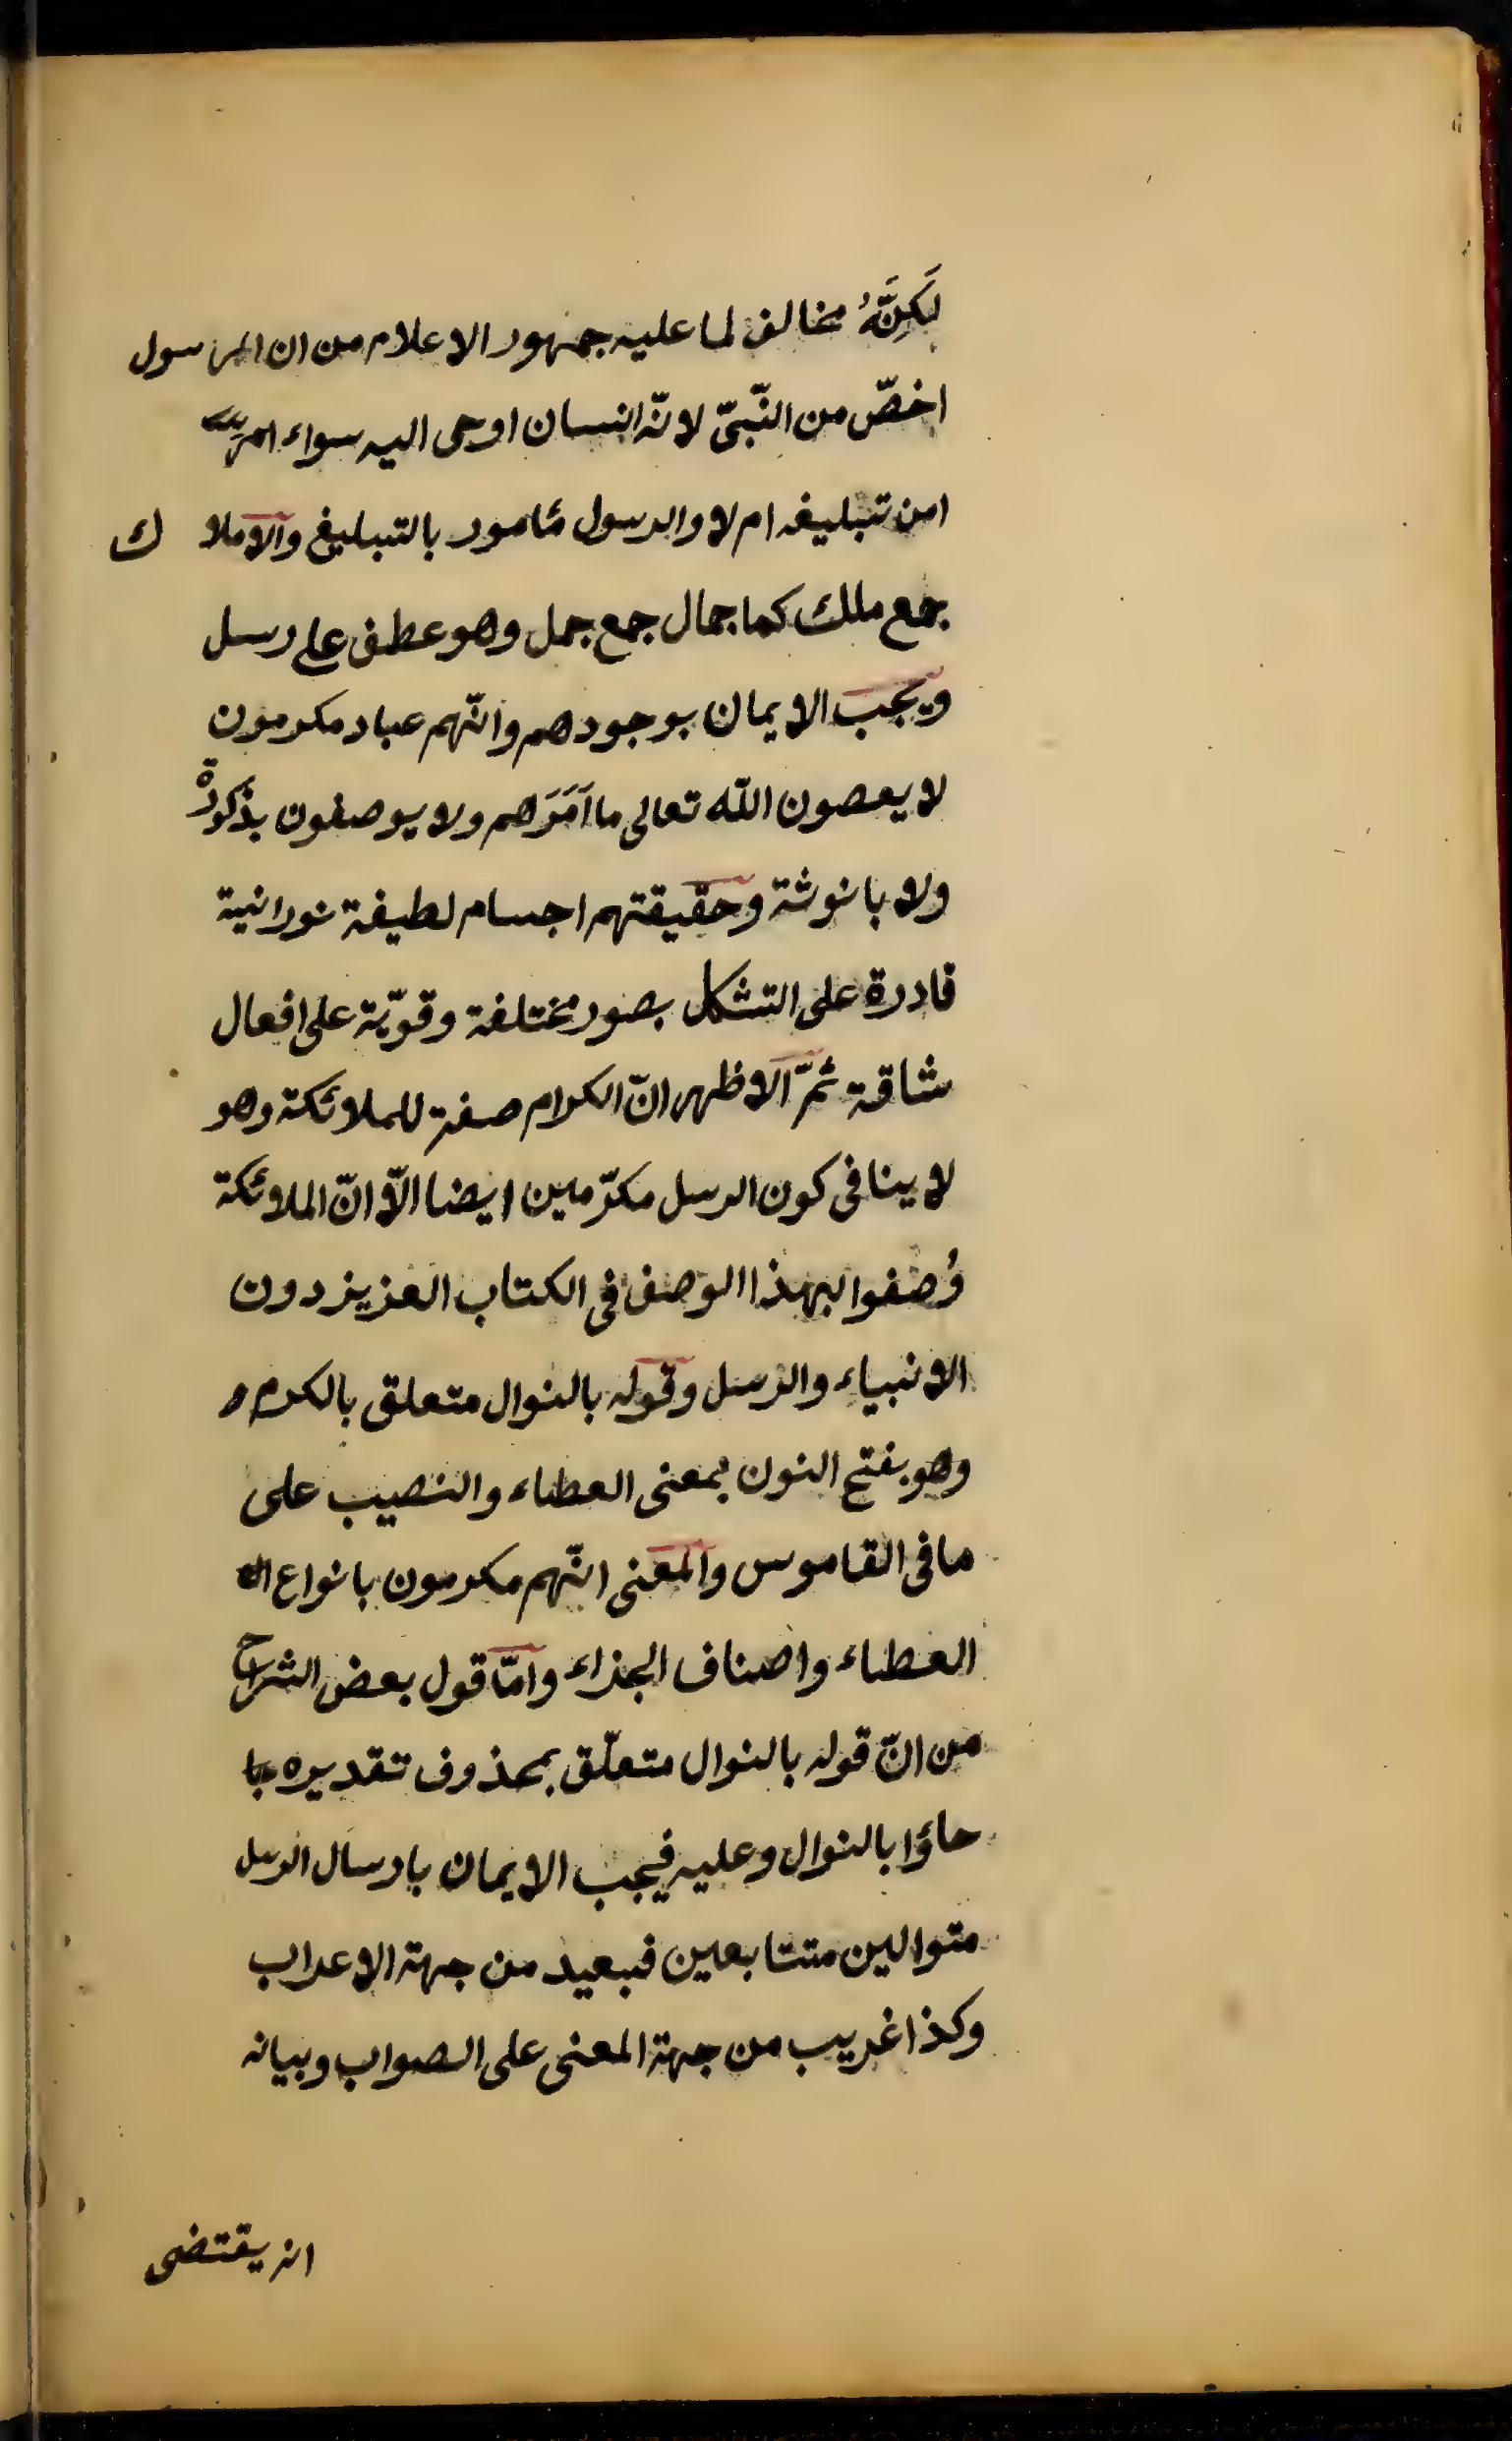 لَكِنَّهُ مخالف لما عليه جمهور الاعلام من ان الرسول
اخصّ من النّبىّ لانّه انسان اوحى اليه سواء
امن تبليغه ام لا والرسول مأمور بالتبليغ والاملا ك
جمع ملك كما جمال جمع جمل وهو عطف على رسل
ويجب الايمان بوجودهم وانّهم عباد مكرمون
لا يعصون اللّه تعالى ما اَمَرَهم ولا يوصفون بذكورة
ولا بانوثة وحقيقتهم اجسام لطيفة نورانية
قادرة على التشكل بصور مختلفة وقويّة على افعال
شاقة ثمّ الاظهر انّ الكرام صفة للملائكة وهو
لا ينافى كون الرسل مكرّمين ايضا الّا انّ الملائكة
وُصفوا بهذا الوصف فى الكتاب العزيز دون
الانبياء والرسل وقوله بالنوال متعلق بالكرام
وهو بفتح النون بمعنى العطاء والنصيب على
ما فى القاموس والمعنى انّهم مكرمون بانواع
العطاء واصناف الجزاء وامّا قول بعض الشراح
من انّ قوله بالنوال متعلّق بمحذوف تقديره جا
جاؤا بالنوال وعليه فيجب الايمان بارسال الرسل
متوالين متتابعين فبعيد من جهة الاعراب
وكذا غريب من جهة المعنى على الصواب وبيانه
انه يقتضى